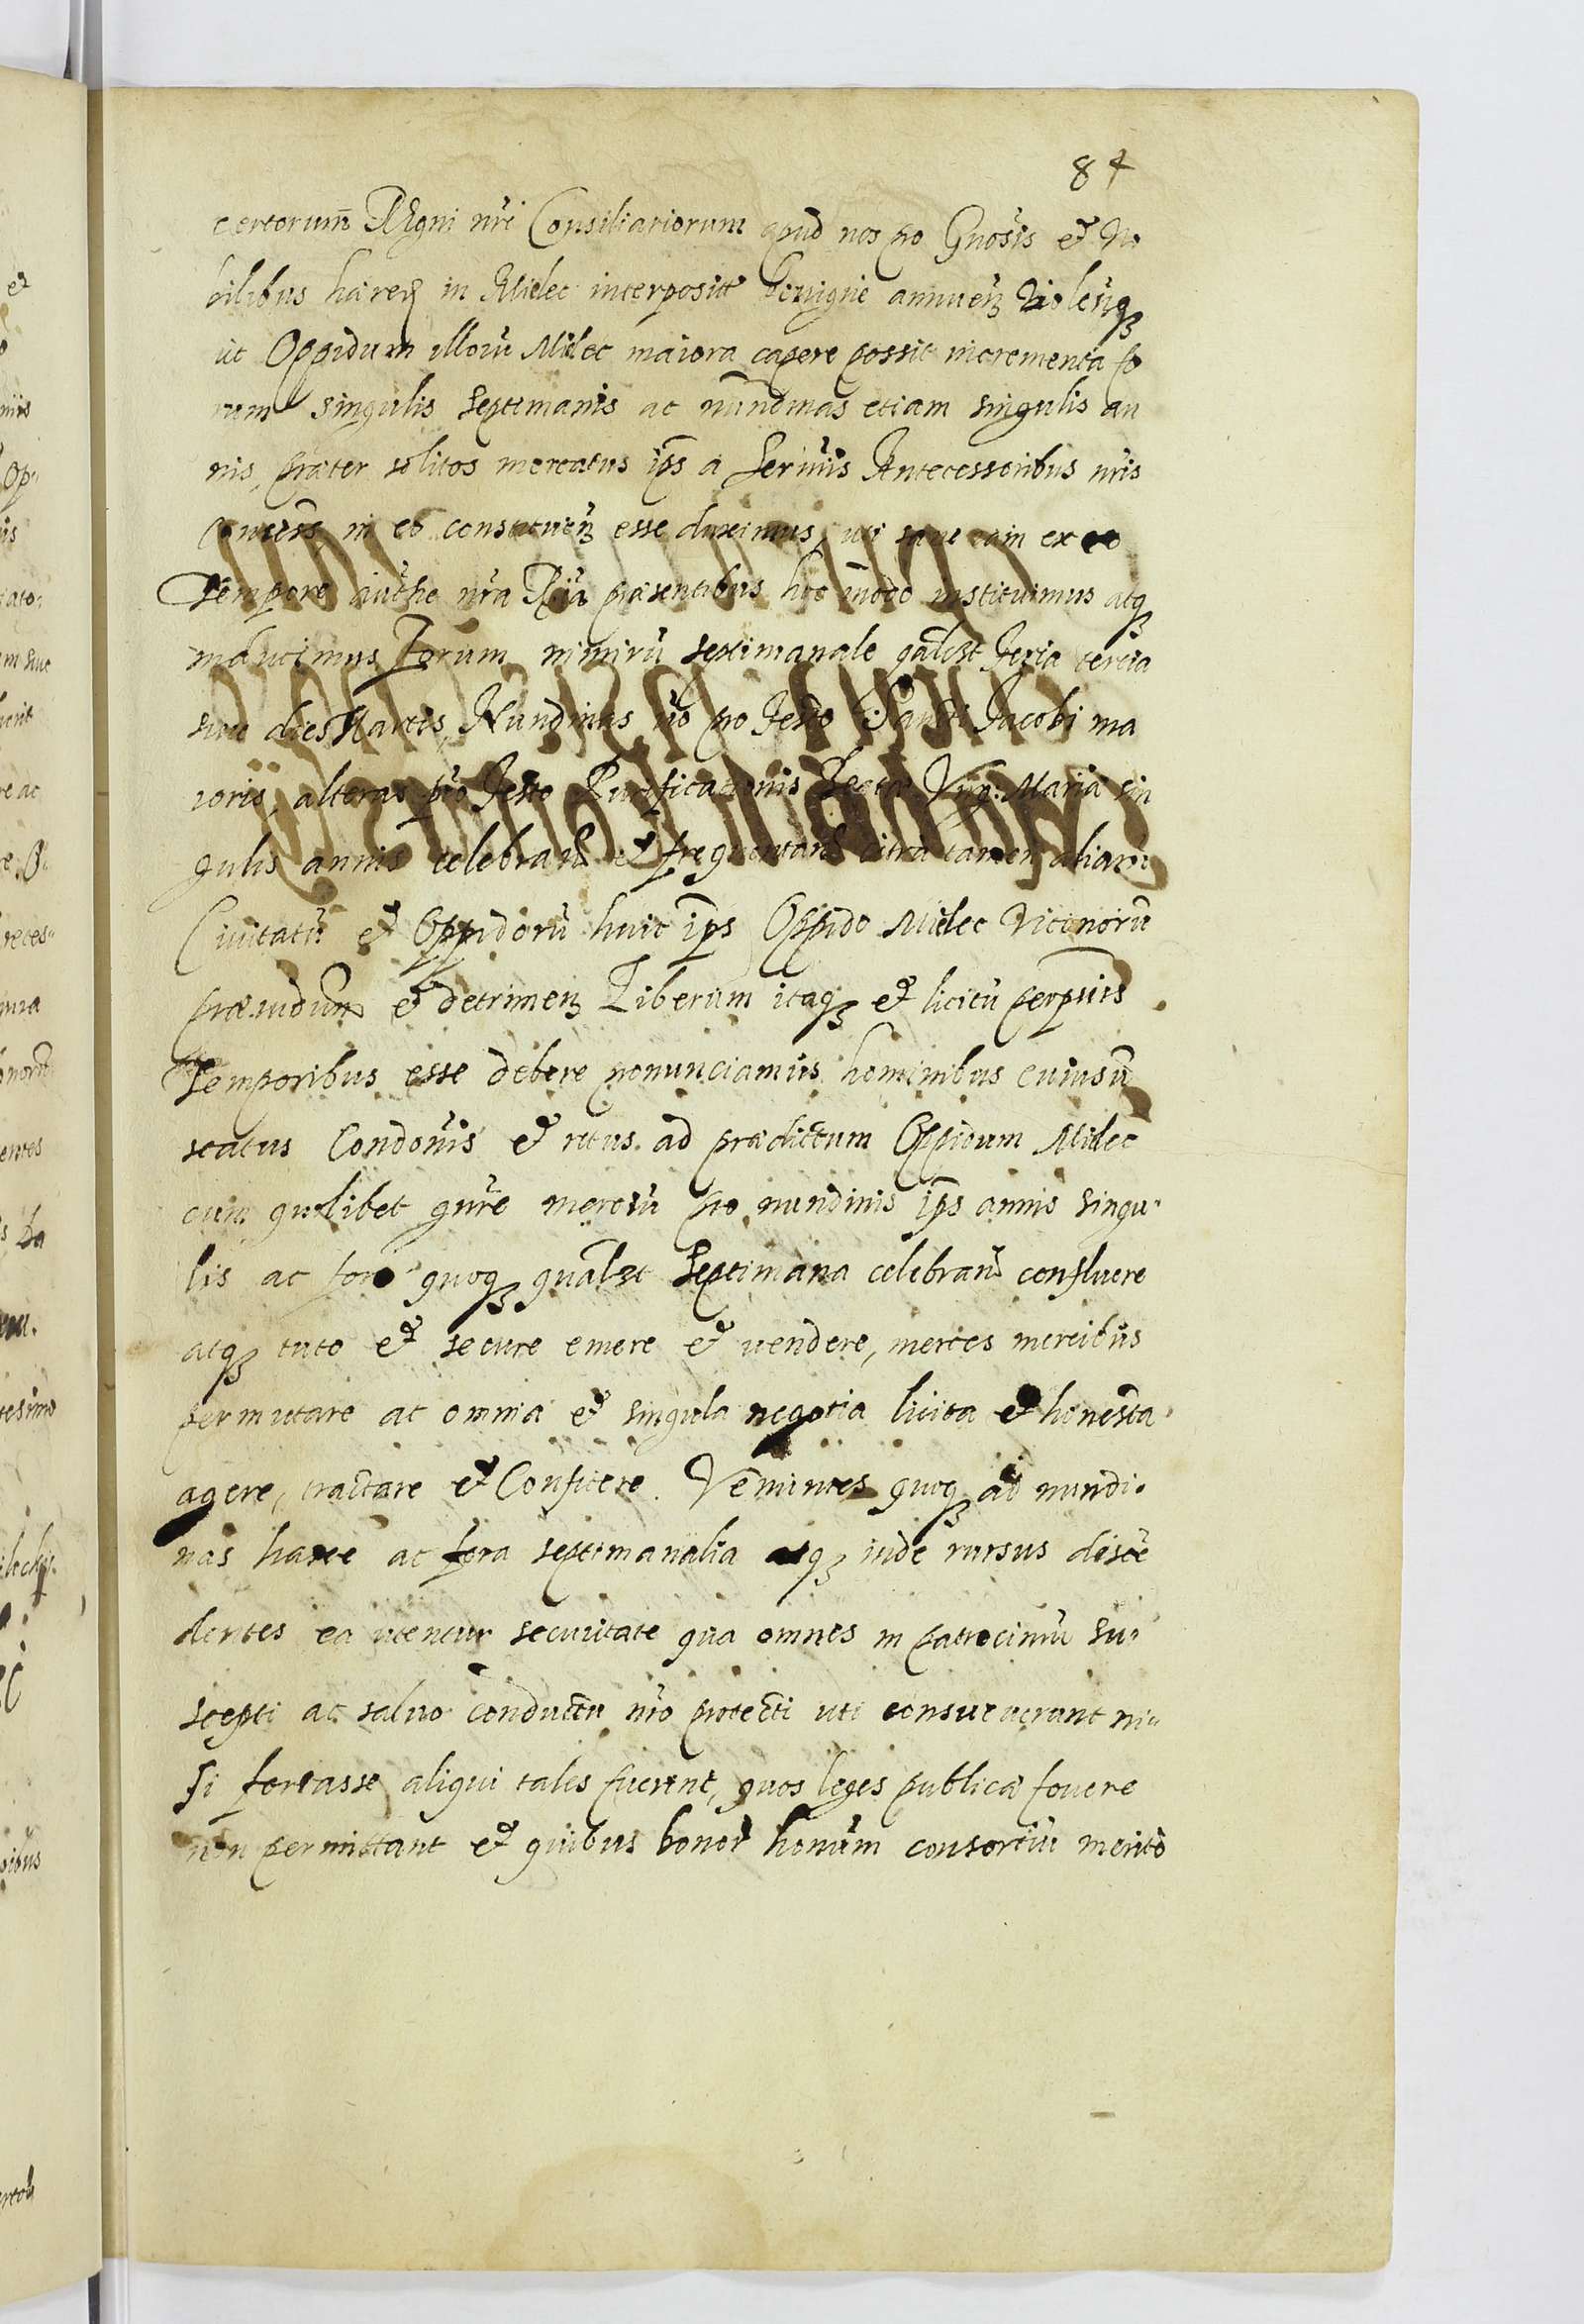 84
certorum Regni nri Consiliariorum apud nos pro Gnosis et No
bilibus haredũ in Mielec interposit benigne annuen volenq
ut Oppidum illorũ Mielec maiora capere possit incrementa fo
rum singulis septimanis ac nundinas etiam singulis an
nis, præter solitos mercatus ips a Sermis Antecessoribus nris
in eo constituen esse duximus, uti iam ex eo
tempore authe nra Ria præsentibus hoc modo instituimus atq
inducimus Forum nimirũ septimanale qualibet Feria tertia
siue dies Martis, Nundinas uo pro Festo Sancti Jacobi ma
ioris, alteras pro Festo Purificationis Beatæ Virg: Mariæ sin
gulis annis celebrand et frequentand citra tamen aliarũ
Ciuitatũ et Oppidorũ huic ips Oppido Mielec vicinorũ
præiudicm et detrimen Liberum itaq et licitũ perpuis
temporibus esse debere pronunciamus hominibus cuiusuis
status Condonis et ritus ad prædictum Oppidum Mielec
cum quolibet gñre merciũ pro nundinis ips annis singu-
lis ac foro quoq qualibet Septimana celebrand confluere
atq tuto et secure emere et vendere, merces mercibus
permutare ac omnia et singula negotia licita et honesta
agere, tractare et Conficere. Venientes quoq ad nundi-
nas hasce ac fora septimanalia atq inde rursus disce
dentes ea utentur securitate qua omnes in patrociniũ su-
scepti ac saluo conductu nro protecti uti consueuerunt ni-
si fortasse aliqui tales fuerint, quos leges publicæ fouere
non permittant et quibus bonor honum consortiũ merito